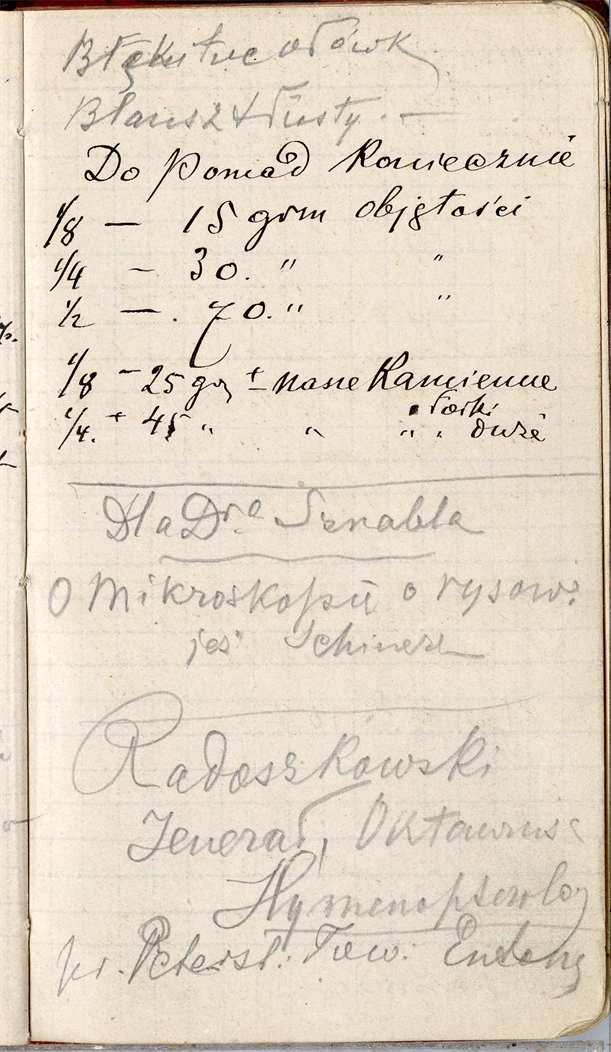 Błękitne
Blansz tłusty. —
Do pomad koniecznie
1/8 — 15 grm objętości
1/4 — 30. " "
1/2 — . 70. " "
1/8 — 25 gr ± masne Kamienne
1/4. + 45 " " " . duże
Dla Dra Sznabla
O Mikroskopie o rysow:
Schiner
Radoszkowski
Jenerał, Oktawiusz
Hymenopterolog
pr. Petersb. Tow. Entom